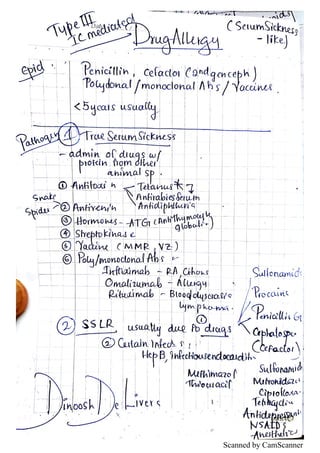 Type III
IC mediated
Drug Allergy
(Serum Sickness
-like)
Epid
Penicillin, Cefaclor (2nd gen ceph)
Polyclonal/monoclonal Abs / Vaccines.
<5 years usually
Pathogen
① True Serum Sickness
- admin of drugs w/
protein from other
animal sp.
① Antitoxin
Tetanus
Antirabies serum
Antidiphtheria
Snake
Spider
② Antivenin
③ Hormones - ATG (Antithymocyte
globulin)
④ Streptokinase
⑤ Vaccine (MMR, VZ)
⑥ Poly/monoclonal Abs
Infliximab - RA, Crohns
Omalizumab - Allergy
Rituximab - Blood dyscrasia
lymphoma.
② SSLR usually due to drugs
①
Sulfonamid
Procaine
Penicillin G
Cephalospo
(Cefaclor)
② Certain Infecs:
Hep B, infectious endocarditis
Methimazol
Thiouracil
Sulfonamid
Metronidazo
Ciproflox
Tetracyclin
Antidepressant
NSAIDs
Anesthetic
Dinoosh De Livera
Scanned by CamScanner